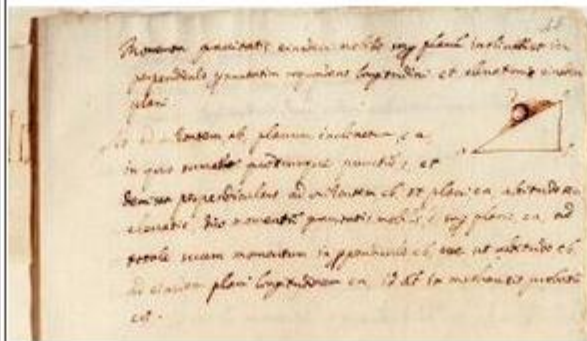 Momenta gravitatis eiusdem mobilis sup planū inclinatū et in
perpendiculo permutatim respondent longitudini et elevationi eiusdem
plani
ad orizontem ab, planum inclinatum, ca
in quo punctum c, et
perpendicularis ad orizontem cb, sit plani ca altitudo
elevatio: dico momentū gravitatis mobilis, sup plano ca, ad
totale suum momentum in ppendiculo cb, esse ut altitudo cb
ad eiusdem plani longitudinem ca, id in mechanicis probatū
est.